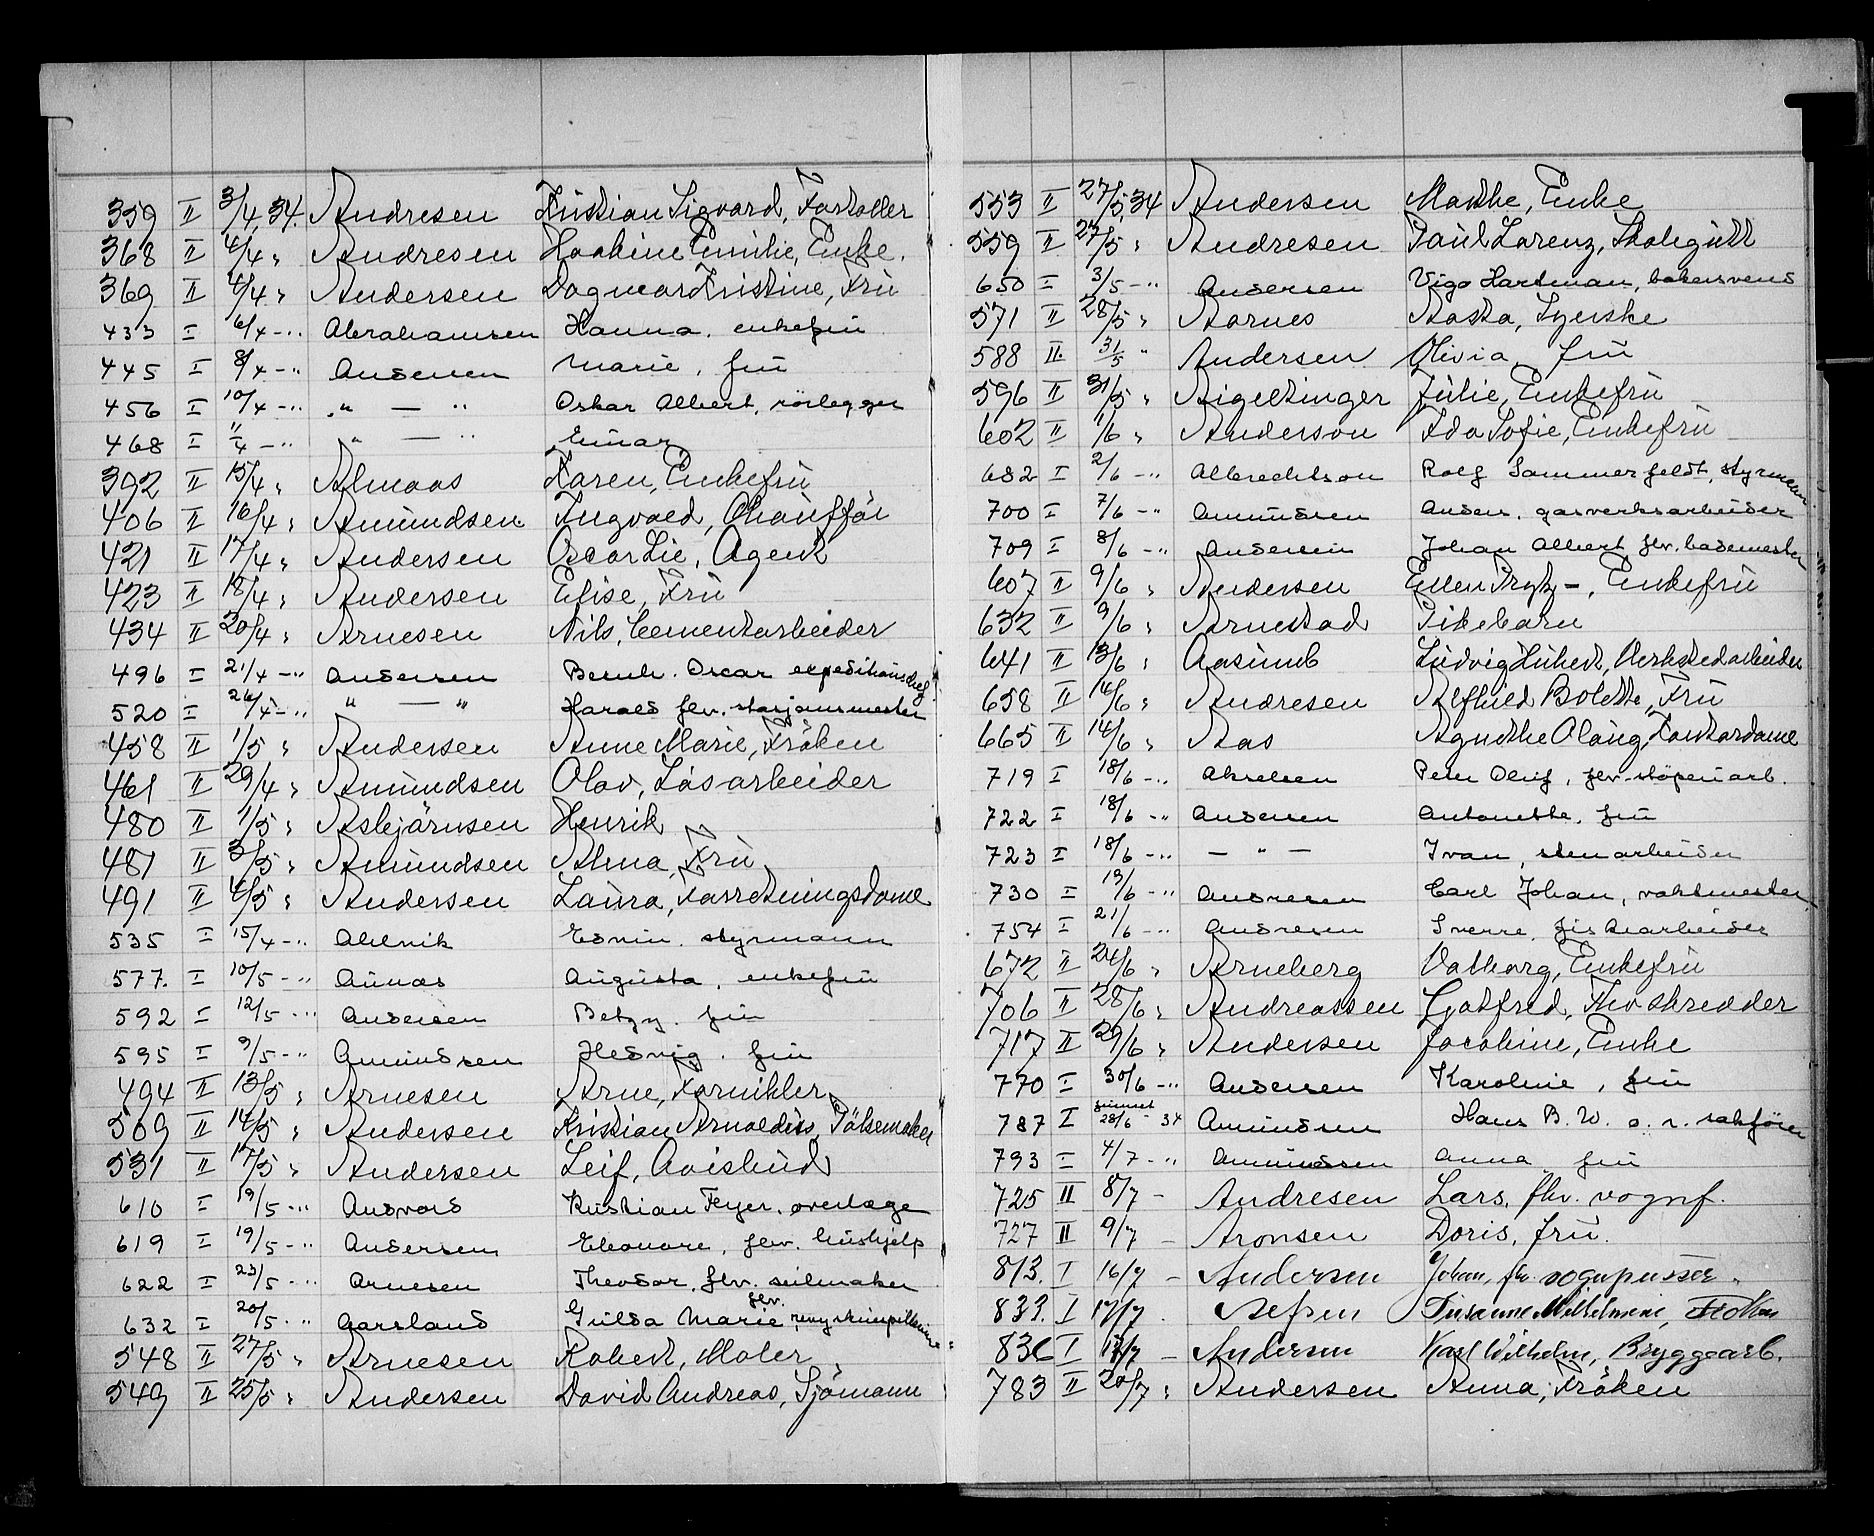 359 II 3/4,34. Andresen Kristian Sigvard, Fortoller
368 II 4/4 " Andresen Haakine Emilie, Enke.
369 II 4/4 " Andersen Dagmar Kristine, Frü
433 I 6/4 -" Abrahamsen Hanna, enkefrü
445 I 8/4 -" Andersen Marie, frü
456 I 10/4 -" " — " Oskar Albert, rörlegger
468 I 11/4 -" " — " Einar
392 II 15/4 " Almaas Karen, Enkefrü
406 II 16/4 " Amündsen Ingvald, Chaüfför
421 II 17/4 " Andersen Oscar Lie, Agent
423 II 18/4 " Andersen Elise, Frü
434 II 20/4 " Arnesen Nils, Cementarbeider
496 I 21/4 -" Andersen Bernh. Oscar expeditionschef
520 I 26/4 -" " — " Harald flv. stasjonsmester
458 II 1/5 " Andersen Anne Marie, Fröken
461 II 29/4 " Amündsen Olav, Løsarbeider
480 II 1/5 " Asbjörnsen Henrik
481 II 3/5 " Amündsen Alma, Frü
491 II 4/5 " Andersen Laüra, Forretningsdame
535 I 15/4 -" Ahlvik Edvin, styrmann
577. I 10/5 -" Aünas Aügüsta, enkefrü
592 I 12/5 -" Andersen Betzy, frü
595 I 9/5 -" Amündsen Hedvig, frü
494 II 13/5 " Arnesen Arne, Fornikler
509 II 14/5 " Andersen Kristian Arnoldüs, Pölsemaker
531 II 17/5 " Andersen Leif, Avisbüd
610 I 19/5 -" Andvord Kristian Feyer, overlæge
619 I 19/5 -" Andersen Eleonore, flv. hüshjelp
622 I 23/5 -" Arnesen Theodor, flv. seilmaker
632 I 20/5 -" Aarsland Gülda Marie, flv.
548 II 27/5 " Arnesen Robert, Maler
549 II 25/5 " Andersen David Andreas, Sjömann
553 II 27/5,34 Andersen Marthe, Enke
559 II 27/5 " Andresen Paül Lorenz, Skolegütt
650 I 3/5 -" Andersen Vigo Hartman, bakersvend
571 II 28/5 " Aarnes Aasta, Syerske
588 II. 31/5 " Andersen Olivia, frü
596 II 31/5 " Aigeltinger Jülie, Enkefrü
602 II 1/6 " Anderson Ida Sofie, Enkefrü
682 I 2/6 -" Albrechtson Rolf Sommerfeldt, styrmann
700 I 7/6 -" Amündsen Anders, gasverksarbeider
709 I 8/6 -" Andersen Johan Albert, flv. bademester
607 II 9/6 " Andersen Ellen Prytz -, Enkefrü
632 II 9/6 " Arnestad Pikebarn
641 II 13/6 " Aasümb Lüdvig Hübert, Verkstedarbeider
658 II 14/6 " Andresen Alfhild Bolette, Frü
665 II 14/6 " Aas Agnethe Olaüg, Kontordame
719 I 18/6 -" Akselsen Peter Olüf, flv. støperiarb.
722 I 18/6 -" Andersen Antonette, frü
723 I 18/6 -" — " — Ivan, stenarbeider
730 I 19/6 -" Andresen Carl Johan, vaktmester
754 I 21/6 -" Andresen Sverre, fiskearbeider
672 II 24/6 " Arneberg Valborg, Enkefrü
706 II 28/6 " Andreassen Gotfred, Flv skredder
717 II 29/6 " Andersen Jacobine, Enke
770 I 30/6 -" Andersen Karoline, frü
787 I funnet 28/6 - 34 Amündsen Hans B. W. o. r. sakfører
793 I 4/7 -" Amündsen Anna, frü
725 II 8/7 - Andresen Lars, fhv. vognf.
727 II 9/7 - Aronsen Doris, frü.
813. I 16/7 - Andersen Johan, fhv. vognpusser.
833. I 17/7 - Susanne Wilhelmine,
836 I 17/7 - Andersen Karl Wilhelm, Bryggearb.
783 II 20/7 " Andersen Anna, Fröken